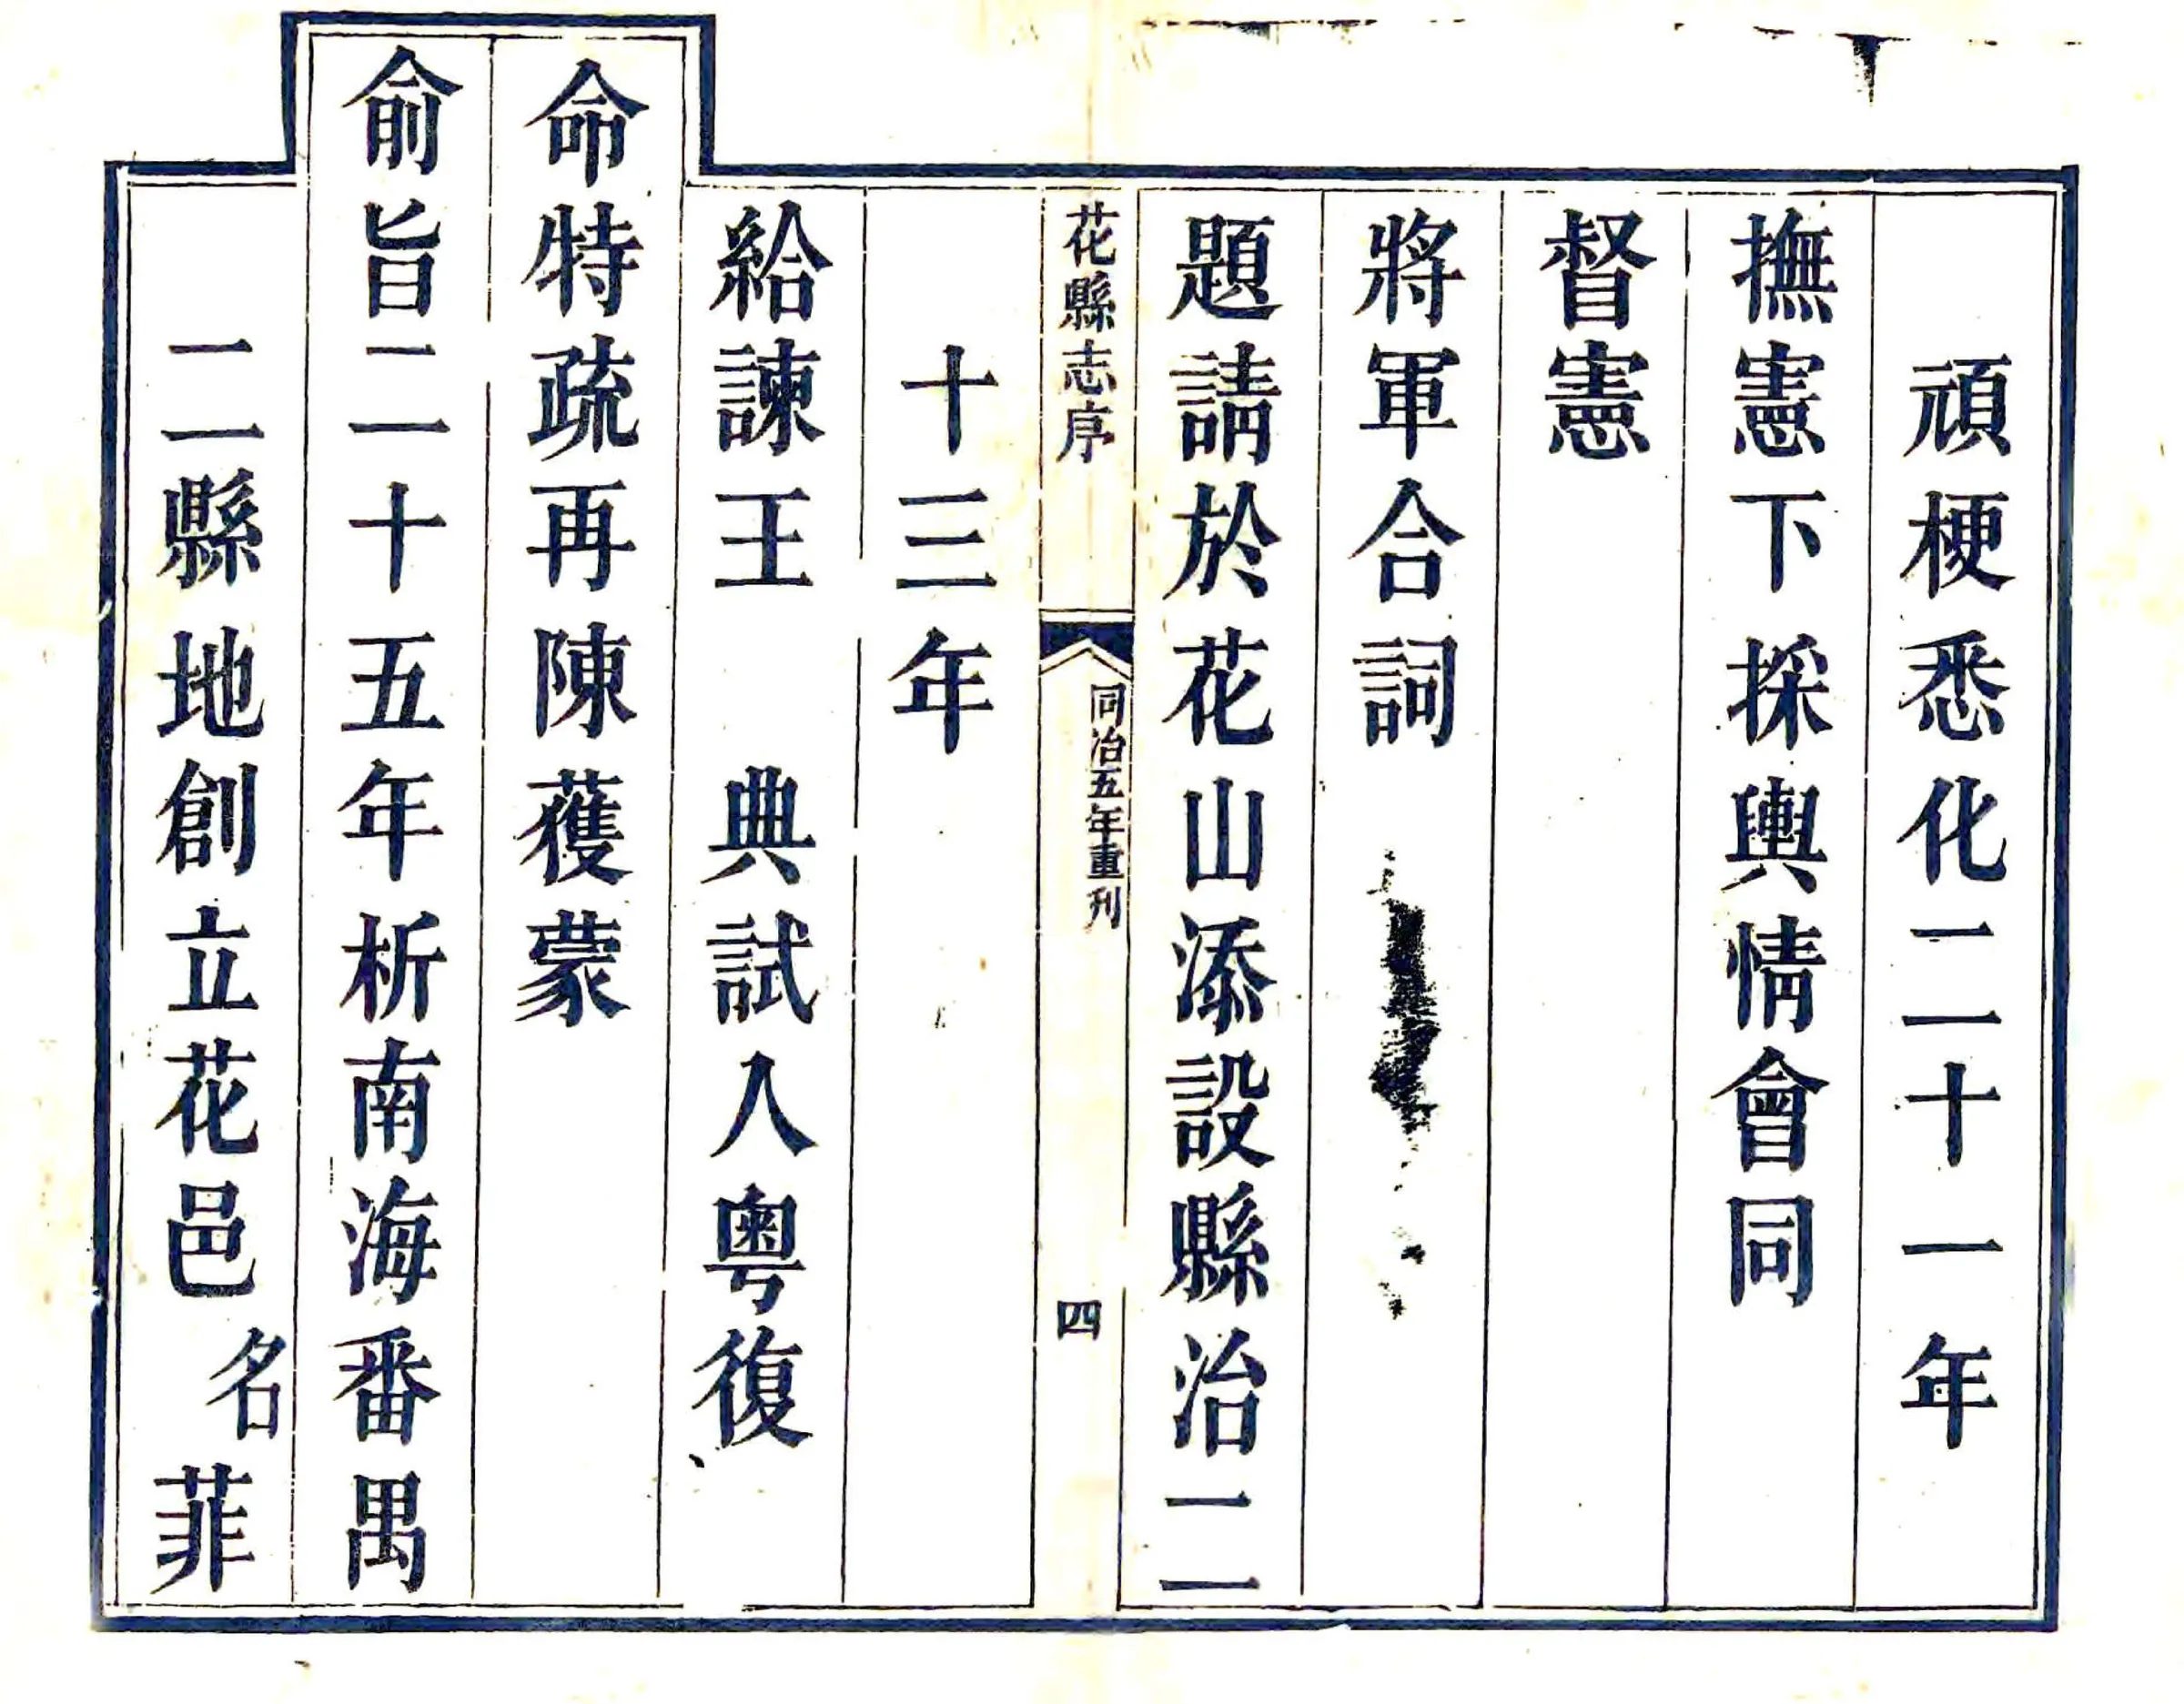 頑梗悉化二十一年
撫憲下採輿情會同
督憲
將軍合詞
題請於花山添設縣治二
花縣志序
同治五年重刋
四
十三年
給諫王 典試入粵復
命特疏再陳獲蒙
俞旨二十五年析南海番禺
二縣地創立花邑名菲